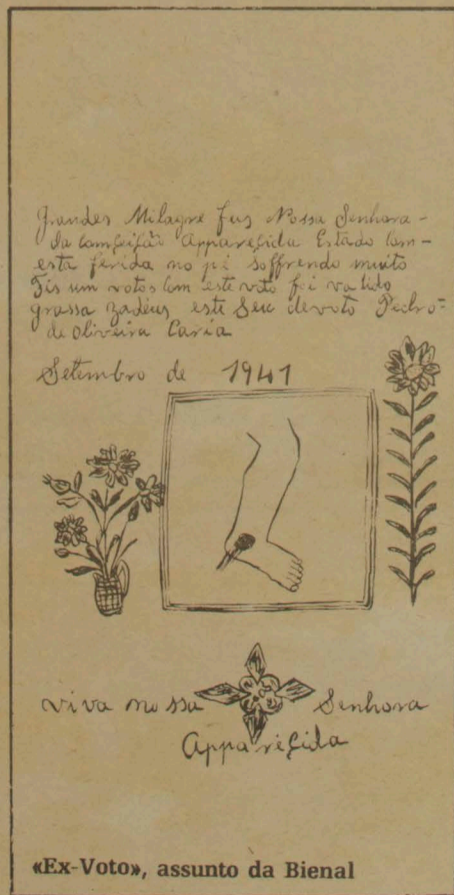 Grandes Milagre fes Nossa Senhora -
da Comseição Appareçida Estãdo Com -
esta ferida no pé soffrendo muito
Fis um votos Com este voto foi valido
grassa zadeus este Seu devoto Pedro -
de Oliveira Caria
Setembro de 1941
viva nossa Senhora
Appareçida
«Ex-Voto», assunto da Bienal